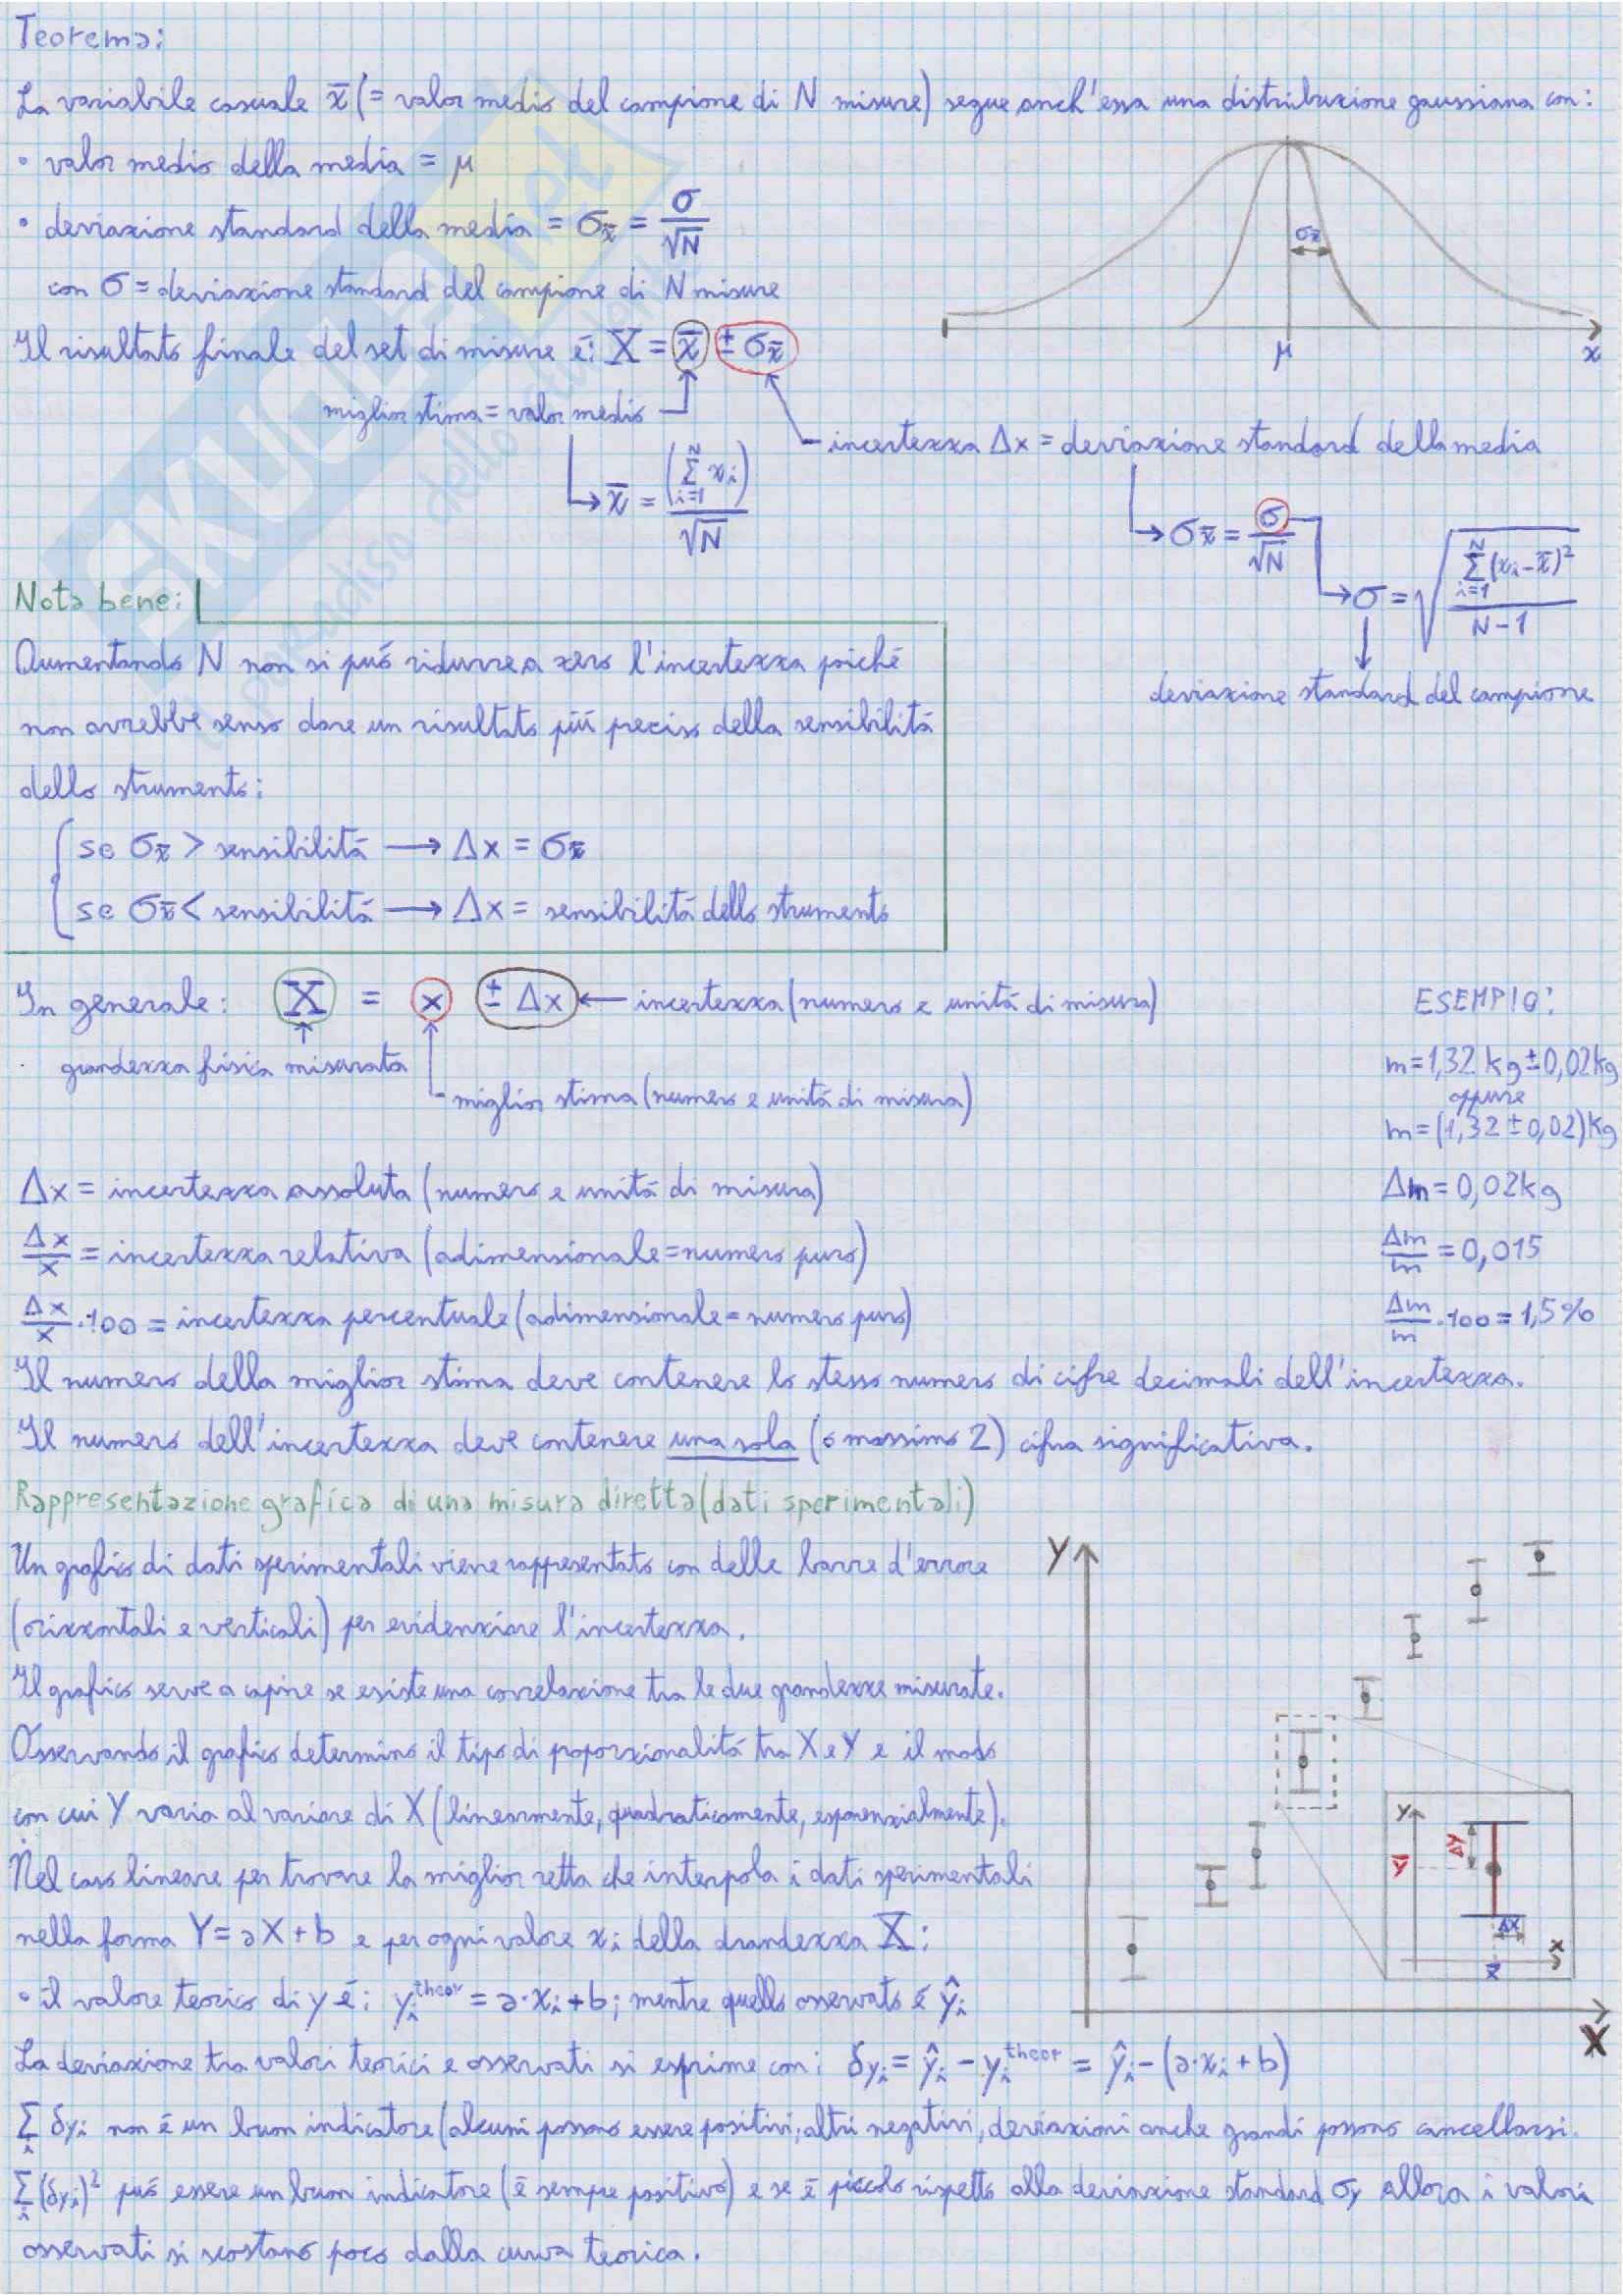 Teorema:
La variabile casuale x̄ (= valor medio del campione di N misure) segue anch'essa una distribuzione gaussiana con:
• valor medio della media = μ
• deviazione standard della media = σx̄ = σ/√N
con σ = deviazione standard del campione di N misure
Il risultato finale del set di misure é: X = x̄ ± σx̄
σx̄
μ
x
miglior stima = valor medio
incertezza Δx = deviazione standard della media
x̄ = (∑ i=1 N xi)/√N
σx̄ = σ/√N
σ = √(∑ i=1 N (xi - x̄)²/N-1)
deviazione standard del campione
Nota bene:
Aumentando N non si puó ridurre a zero l'incertezza poiché
non avrebbe senso dare un risultato piú preciso della sensibilitá
dello strumento:
se σx̄ > sensibilitá → Δx = σx̄
se σx̄ < sensibilitá → Δx = sensibilitá dello strumento
In generale: X = x ± Δx ← incertezza (numero e unitá di misura)
grandezza fisica misurata
miglior stima (numero e unitá di misura)
ESEMPIO:
m = 1,32 kg ± 0,02 kg
oppure
m = (1,32 ± 0,02) kg
Δx = incertezza assoluta (numero e unitá di misura)
Δm = 0,02 kg
Δx/x = incertezza relativa (adimensionale = numero puro)
Δm/m = 0,015
Δx/x · 100 = incertezza percentuale (adimensionale = numero puro)
Δm/m · 100 = 1,5%
Il numero della miglior stima deve contenere lo stesso numero di cifre decimali dell'incertezza.
Il numero dell'incertezza deve contenere una sola (o massimo 2) cifra significativa.
Rappresentazione grafica di una misura diretta (dati sperimentali)
Un grafico di dati sperimentali viene rappresentato con delle barre d'errore
(orizzontali e verticali) per evidenziare l'incertezza.
Il grafico serve a capire se esiste una correlazione tra le due grandezze misurate.
Osservando il grafico determino il tipo di poporzionalitá tra X e Y e il modo
con cui Y varia al variare di X (linearmente, quadraticamente, esponenzialmente).
Nel caso lineare per trovare la miglior retta che interpola i dati sperimentali
nella forma Y = aX + b e per ogni valore xi della drandezza X:
• il valore teorico di y é: yi theor = a·xi + b; mentre quello osservato é ŷi
Y
X
Y
ȳ
ΔY
ΔX
x̄
X
La deviazione tra valori teorici e osservati si esprime con: δyi = ŷi - yi theor = ŷi - (a·xi + b)
∑i δyi non é un buon indicatore (alcuni possono essere positivi; altri negativi, deviazioni anche grandi possono cancellarsi.
∑i (δyi)² puó essere un buon indicatore (é sempre positivo) e se é piccolo rispetto alla deviazione standard σy allora i valori
osservati si scostano poco dalla curva teorica.